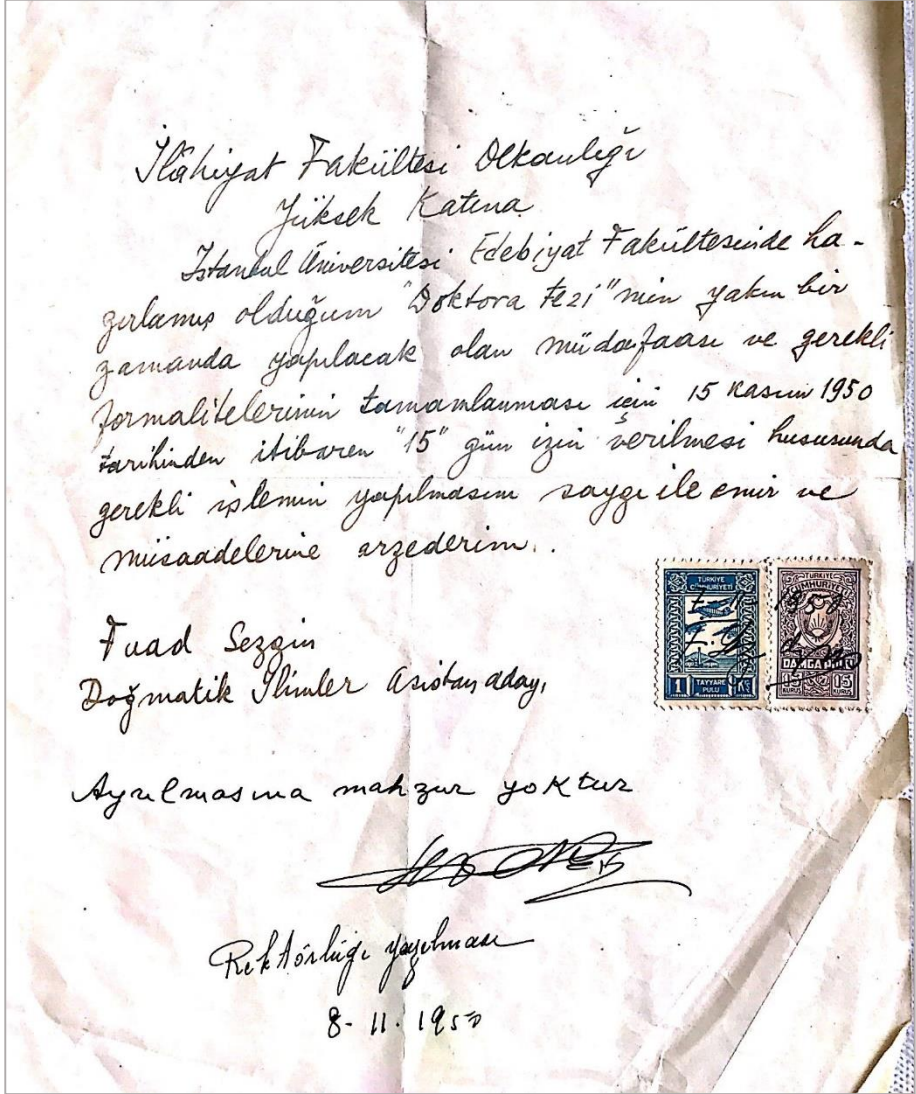 İlâhiyat Fakültesi Dekanlığı
Yüksek Katına
İstanbul Üniversitesi Edebiyat Fakültesinde ha-
zırlamış olduğum "Doktora tezi"min yakın bir
zamanda yapılacak olan müdafaası ve gerekli
formalitelerinin tamamlanması için 15 Kasım 1950
tarihinden itibaren "15" gün izin verilmesi hususunda
gerekli işlemin yapılmasını saygı ile emir ve
müsaadelerine arzederim.
TÜRKİYE
CUMHURİYETİ
1
TAYYARE
PULU
TÜRKİYE
CUMHURİYETİ
DAMGA PULU
15
KURUŞ
15
KURUŞ
Fuad Sezgin
Doğmatik İlimler Asistan adayı
Ayrılmasına mahzur yoktur
Rektörlüğe yazılması
8-11-1950